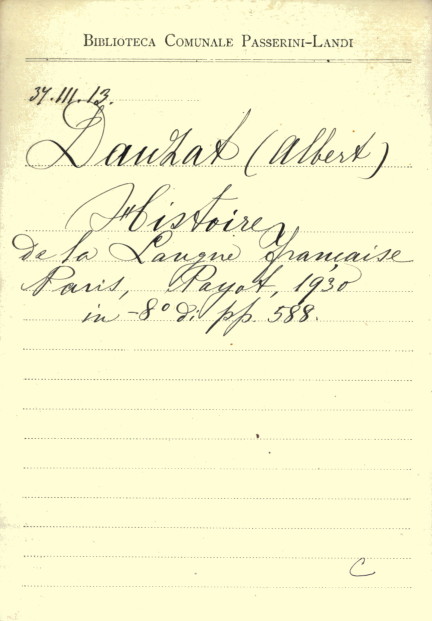 BIBLIOTECA COMUNALE PASSERINI-LANDI
34.III.13.
Dauzat (Albert)
Histoire
de la Langue française
Paris, Payot, 1930
in -8° di pp. 588.
C